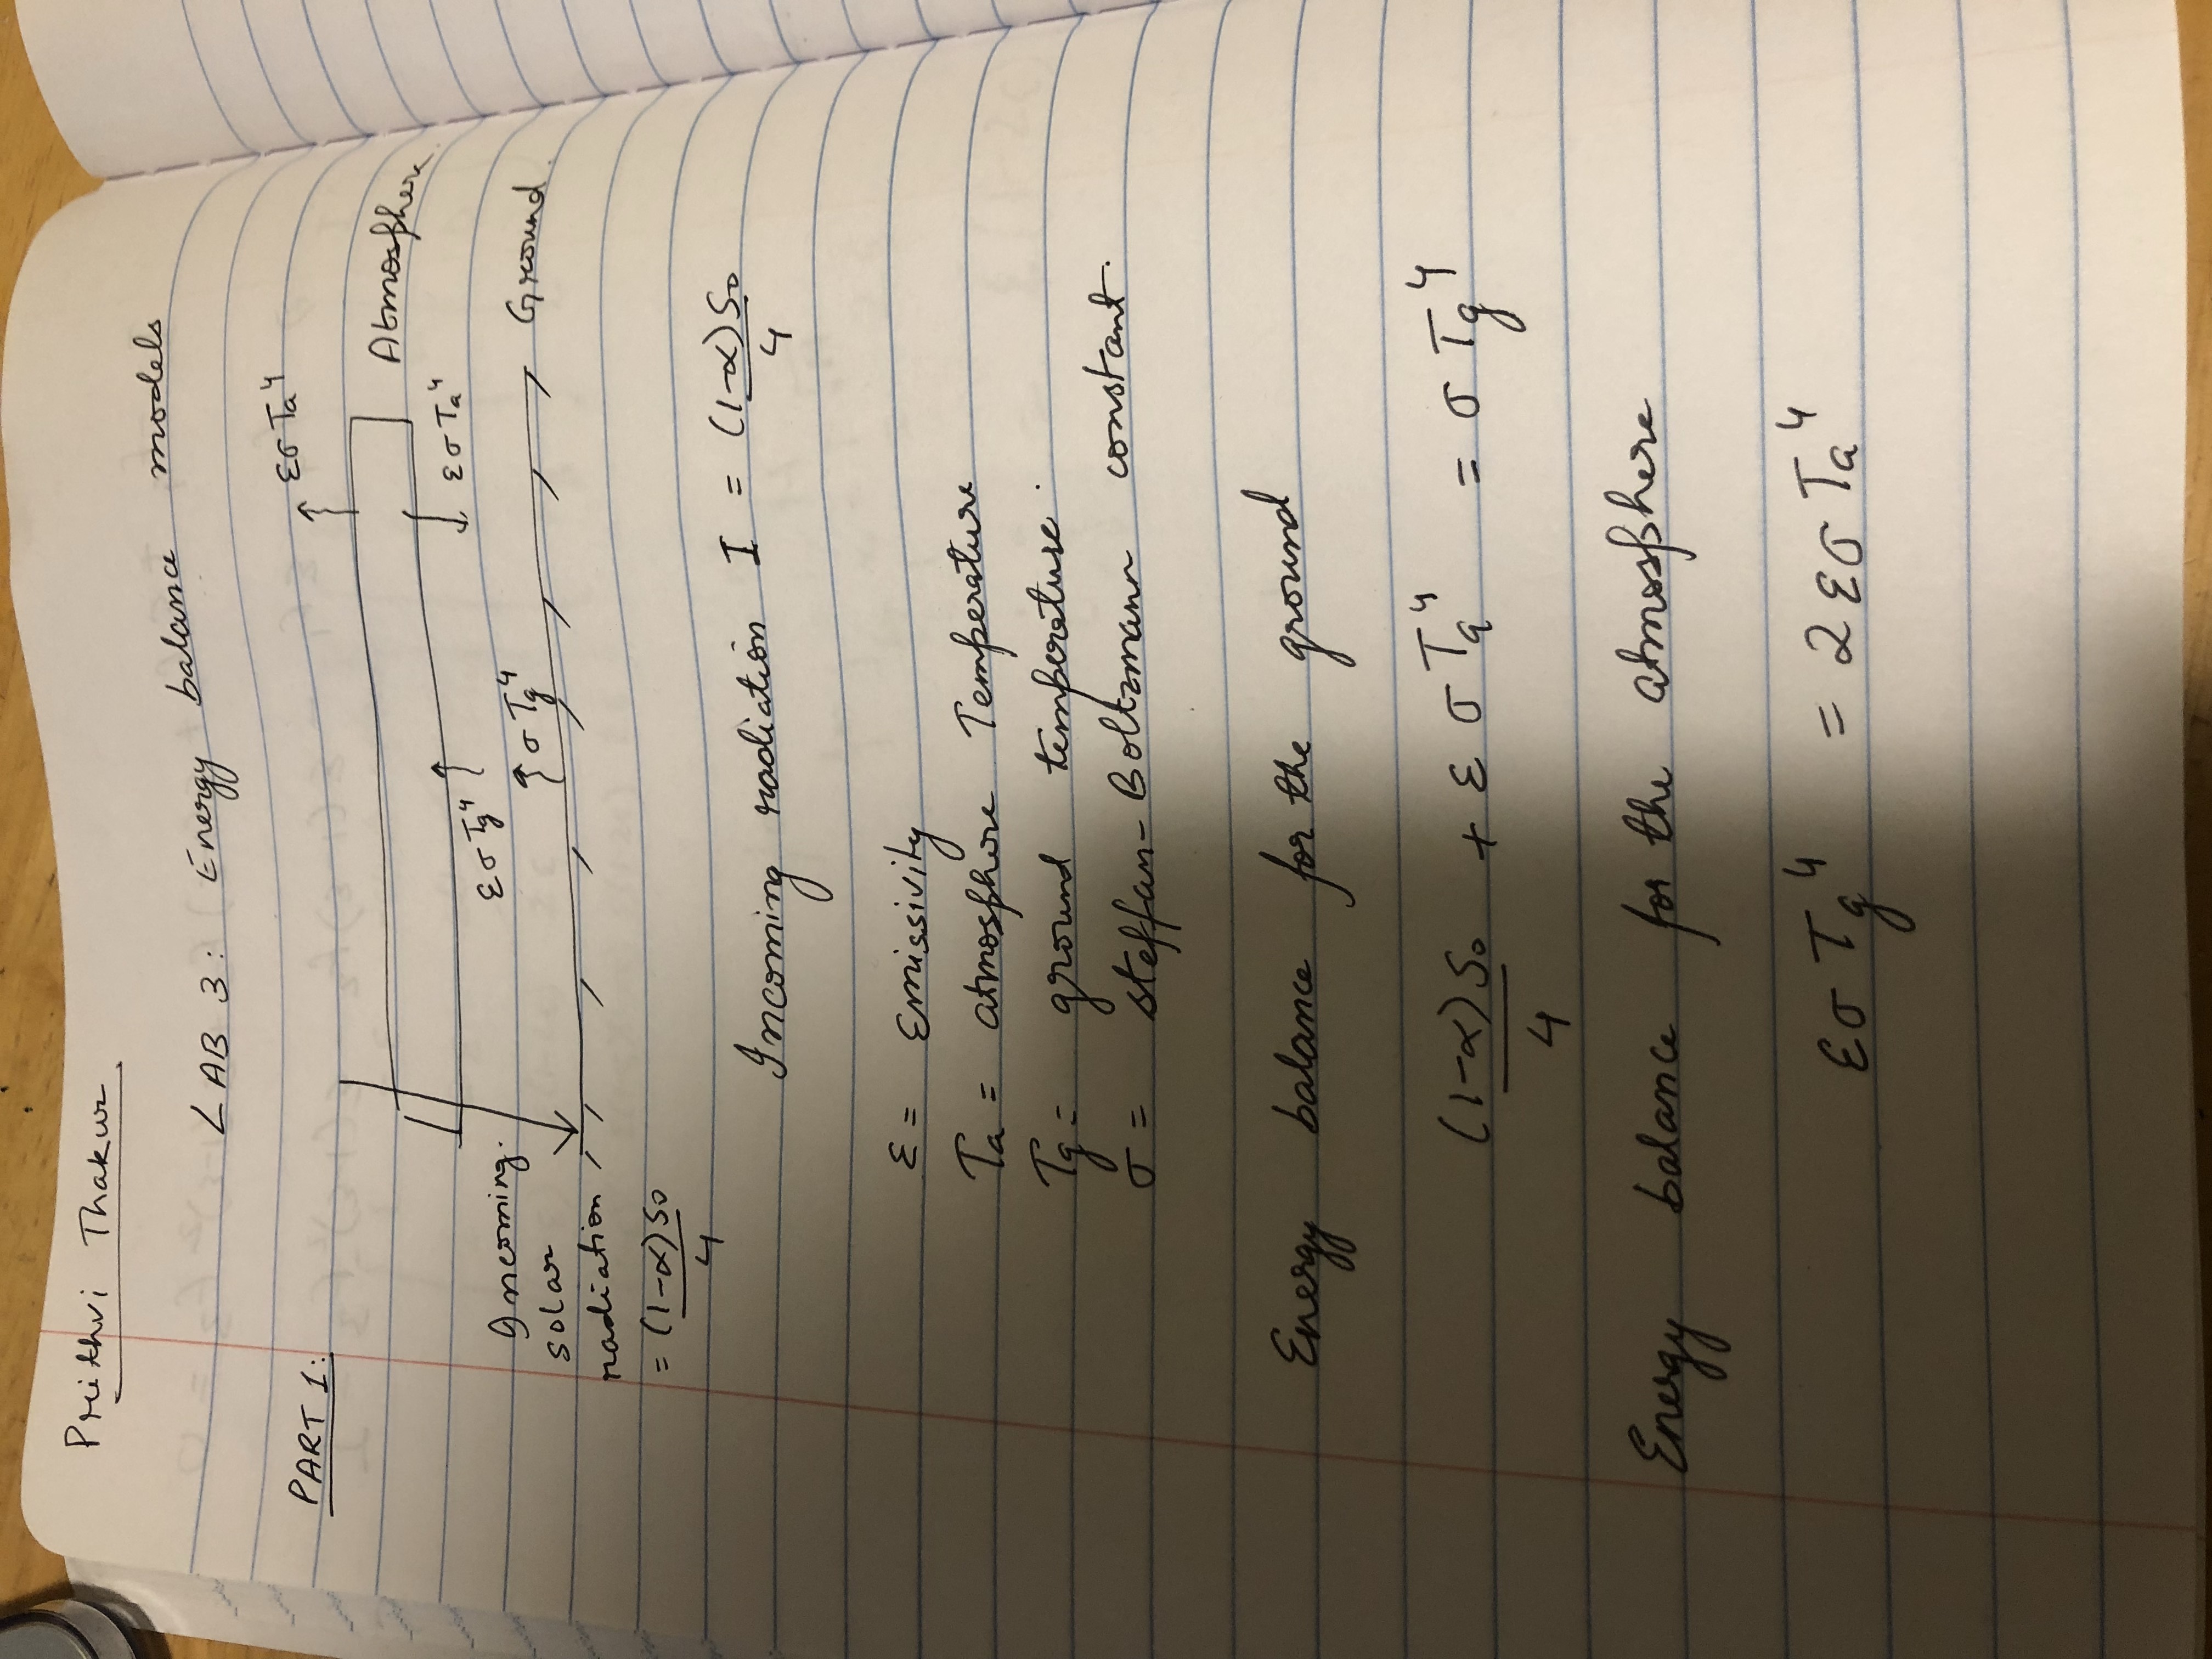 Prithvi Thakur
LAB 3: Energy balance models
PART 1:
εσTa⁴
Atmosphere
εσTg⁴
εσTa⁴
σTg⁴
Ground.
Incoming.
solar
radiation
= (1-α)S₀/4
Incoming radiation I = (1-α)S₀/4
ε = Emissivity
Ta = atmosphere Temperature
Tg = ground temperature.
σ = steffan-Boltzmann constant.
Energy balance for the ground
(1-α)S₀/4 + εσTa⁴ = σTg⁴
Energy balance for the atmosphere
εσTg⁴ = 2εσTa⁴